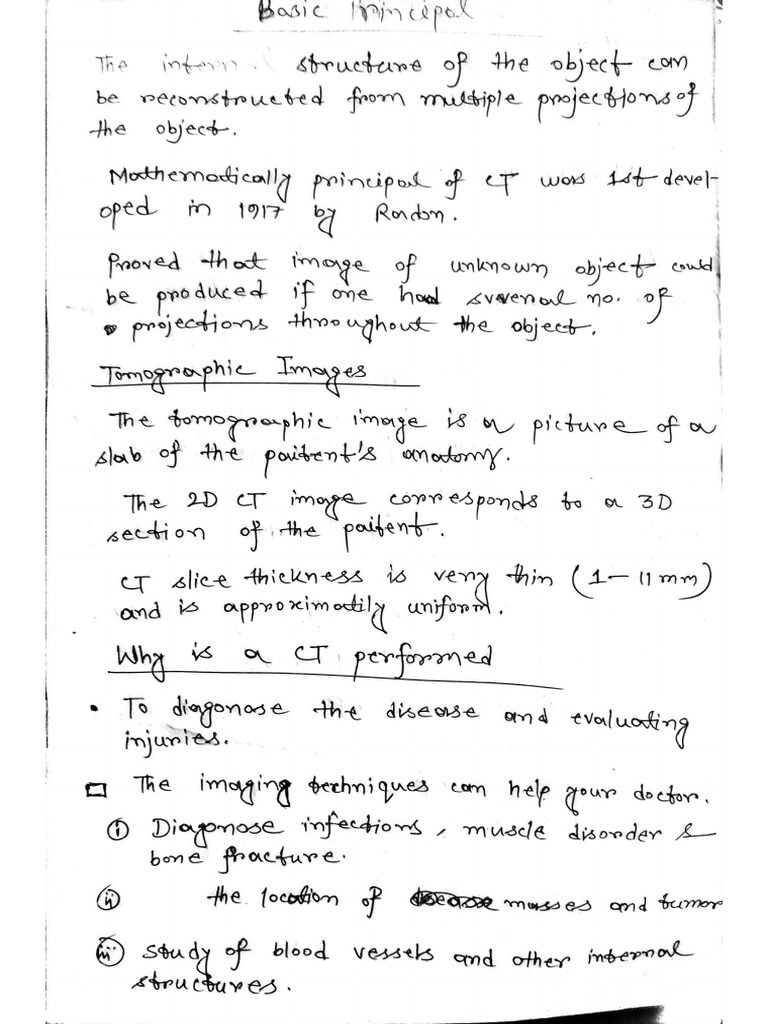 Basic Principal
The intern structure of the object can
be reconstructed from multiple projections of
the object.
Mathematically principal of CT was 1st devel-
oped in 1917 by Radon.
Proved that image of unknown object could
be produced if one had several no. of
projections throughout the object.
Tomographic Images
The tomographic image is a picture of a
slab of the paitent's anatomy.
The 2D CT image corresponds to a 3D
section of the paitent.
CT slice thickness is very thin (1-11mm)
and is approximatily uniform.
Why is a CT performed
• To diagonase the disease and evaluating
injuries.
□ The imaging techniques can help your doctor.
(i) Diagonose infections, muscle disorder &
bone fracture.
(ii) the location of masses and tumor
(iii) study of blood vessels and other internal
structures.